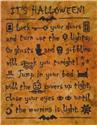 IT'S HALLOWEEN!
Lock your doors
and turn out the lights,
for ghosts and goblins
will spook you tonight!
Jump in your bed
pull the covers up tight,
close your eyes until
the morning is light.